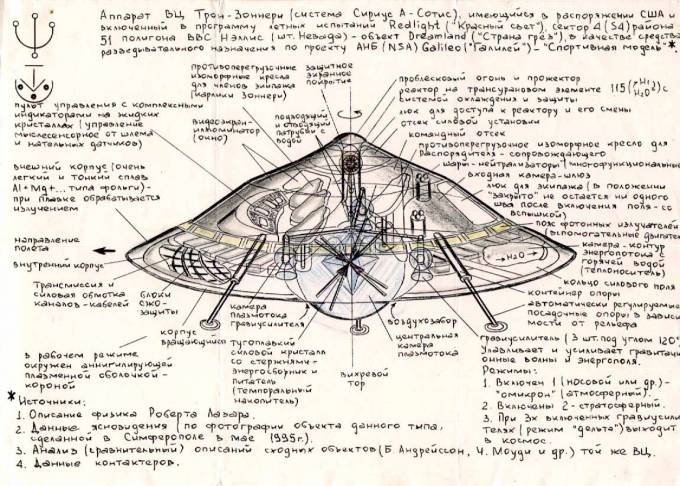 Аппарат ВЦ Трон-Зоннери (система Сириус А-Сотис), имеющиеся в распоряжении США и
включенный в программу летных испытаний "Redlight" ("Красный свет"), сектор 4 (S4) района
51 полигона ВВС Нэллис (шт. Невада) - объект Dreamland ("Страна грёз"), в качестве средства
разведывательного назначения по проекту АНБ (NSA) Galileo ("Галилей") - "Спортивная модель" *
противоперегрузочные
изоморфные кресла
для членов экипажа
(карлики Зоннери)
защитное
экранное
покрытие
пульт управления с комплексными
индикаторами на жидких
кристаллах (управление
мыслесенсорное от шлема
и нательных датчиков)
видеоэкран-
иллюминатор
(окно)
подводящий
и отводящий
патрубки с
водой
внешний корпус (очень
легкий и тонкий сплав
Al+Mg+... типа фольги) -
при плавке обрабатывается
излучением
направление
полета
внутренний корпус
Трансмиссия и
силовая обмотка
каналов-кабелей
блоки
СЖО-
защиты
корпус
вращающийся
в рабочем режиме
окружен аннигилирующей
плазменной оболочкой-
короной
проблесковый огонь и прожектор
реактор на трансурановом элементе 115
с системой охлаждения и защиты
люк для доступа к реактору и его смены
отсек силовой установки
командный отсек
противоперегрузочное изоморфное кресло для
Распорядителя - сопровождающего
шары-нейтрализаторы (многофункциональные)
входная камера-шлюз
люк для экипажа (в положении
"закрыто" не остается ни одного
шва после включения поля - со
вспышкой)
пояс фотонных излучателей
(вспомогательные двигатели)
камера-контур
энергопотока с
горячей водой
(теплоноситель)
H₂O
кольцо силового поля
контейнер опоры
автоматически регулируемые
посадочные опоры в зависи-
мости от рельефа
камера
плазмотока
гравиусилителя
Тугоплавкий
силовой кристалл
со стержнями-
энергосборник и
питатель
(темпоральный
накопитель)
вихревой
тор
воздухозабор
центральная
камера
плазмотока
гравиусилитель (3 шт. под углом 120°)
Улавливает и усиливает гравитаци-
онные волны и энергополя.
Режимы:
1. Включен 1 (носовой или др.) -
"омикрон" (атмосферный).
2. Включены 2 - стратосферный.
3. При 3х включенных гравиусили-
телях (режим "дельта") выходит
в космос.
* Источники:
1. Описание физика Роберта Лазара.
2. Данные ясновидения (по фотографии объекта данного типа,
сделанной в Симферополе в мае 1995г.).
3. Анализ (сравнительный) описаний сходных объектов (Б. Андрейссон, Ч. Моуди и др.) той же ВЦ.
4. Данные контактеров.